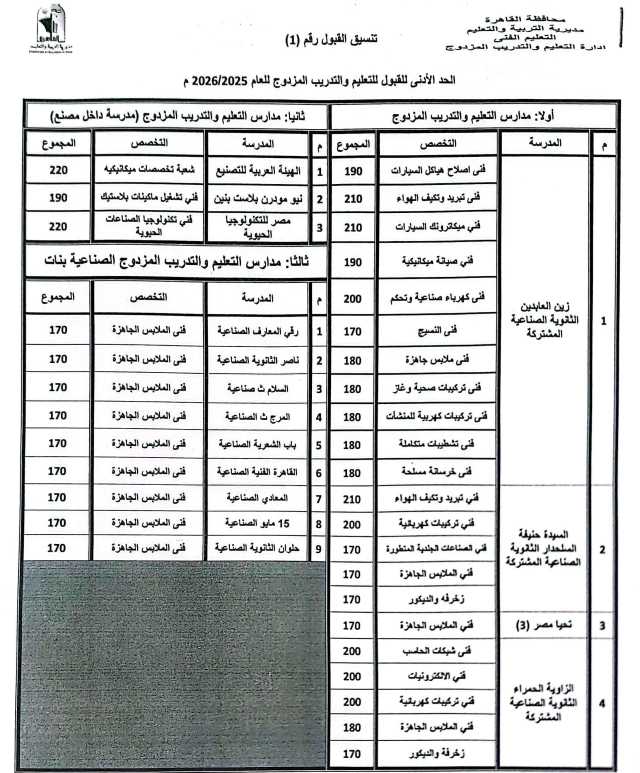 محافظة القاهرة
مديرية التربية والتعليم
التعليم الفنى
ادارة التعليم والتدريب المزدوج
تنسيق القبول رقم (1)
الحد الأدنى للقبول للتعليم والتدريب المزدوج للعام 2026/2025 م
أولا: مدارس التعليم والتدريب المزدوج
م المدرسة التخصص المجموع
1 زين العابدين الثانوية الصناعية المشتركة
فنى اصلاح هياكل السيارات 190
فنى تبريد وتكيف الهواء 210
فني ميكاترونك السيارات 210
فني صيانة ميكانيكية 190
فنى كهرباء صناعية وتحكم 200
فنى النسيج 170
فنى ملابس جاهزة 180
فنى تركيبات صحية وغاز 180
فنى تركيبات كهربية للمنشآت 180
فنى تشطيبات متكاملة 180
فنى خرسانة مسلحة 180
2 السيدة حنيفة السلحدار الثانوية الصناعية المشتركة
فني تبريد وتكيف الهواء 210
فني تركيبات كهربائية 200
فني الصناعات الجلدية المتطورة 170
فني الملابس الجاهزة 170
زخرفه والديكور 170
3 تحيا مصر (3) فني الملابس الجاهزة 170
4 الزاوية الحمراء الثانوية الصناعية المشتركة
فنى شبكات الحاسب 200
فني الالكترونيات 200
فني تركيبات كهربائية 200
فنى الملابس الجاهزة 180
زخرفة والديكور 170
ثانيا: مدارس التعليم والتدريب المزدوج (مدرسة داخل مصنع)
م المدرسة التخصص المجموع
1 الهيئة العربية للتصنيع شعبة تخصصات ميكانيكيه 220
2 نيو مودرن بلاست بنين فني تشغيل ماكينات بلاستيك 190
3 مصر للتكنولوجيا الحيوية فني تكنولوجيا الصناعات الحيوية 220
ثالثا: مدارس التعليم والتدريب المزدوج الصناعية بنات
م المدرسة التخصص المجموع
1 رقي المعارف الصناعية فنى الملابس الجاهزة 170
2 ناصر الثانوية الصناعية فنى الملابس الجاهزة 170
3 السلام ث صناعية فنى الملابس الجاهزة 170
4 المرج ث الصناعية فنى الملابس الجاهزة 170
5 باب الشعرية الصناعية فنى الملابس الجاهزة 170
6 القاهرة الفنية الصناعية فنى الملابس الجاهزة 170
7 المعادي الصناعية فنى الملابس الجاهزة 170
8 15 مايو الصناعية فنى الملابس الجاهزة 170
9 حلوان الثانوية الصناعية فنى الملابس الجاهزة 170